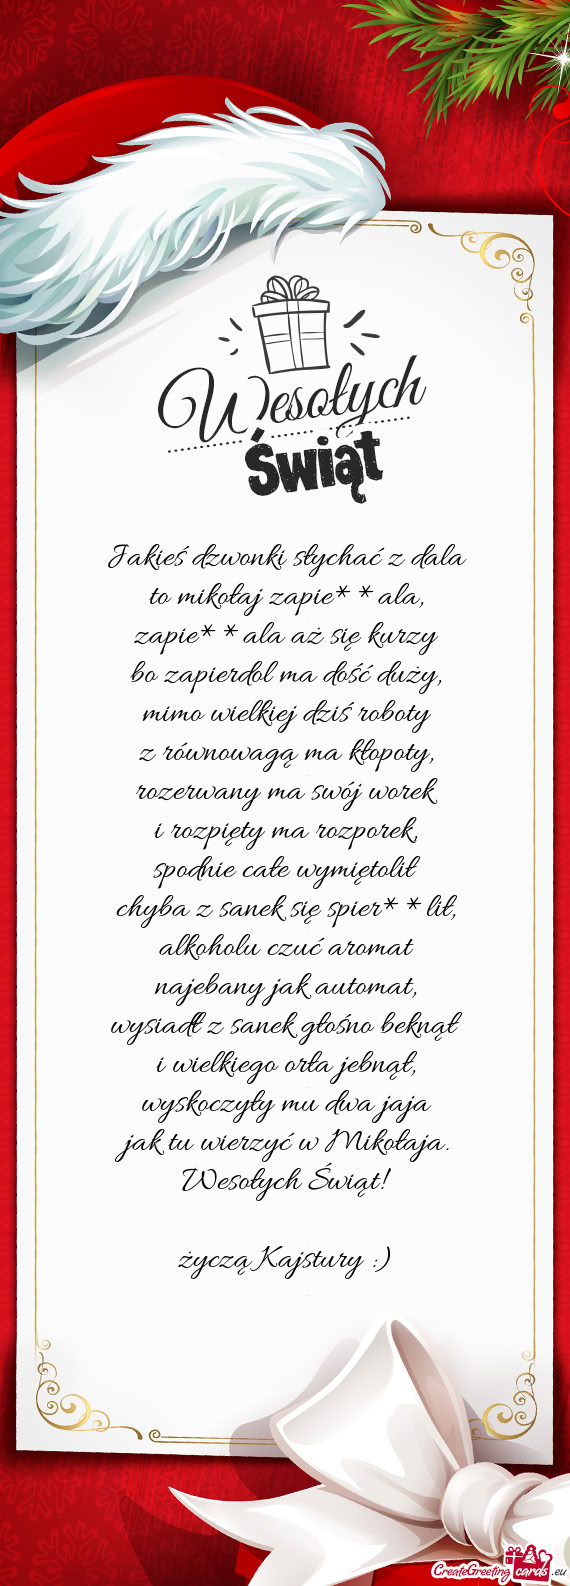 Wesołych
Świąt
Jakieś dzwonki słychać z dala
to mikołaj zapie* * ala,
zapie* * ala aż się kurzy
bo zapierdol ma dość duży,
mimo wielkiej dziś roboty
z równowagą ma kłopoty,
rozerwany ma swój worek
i rozpięty ma rozporek,
spodnie całe wymiętolił
chyba z sanek się spier* * lił,
alkoholu czuć aromat
najebany jak automat,
wysiadł z sanek głośno beknął
i wielkiego orła jebnął,
wyskoczyły mu dwa jaja
jak tu wierzyć w Mikołaja.
Wesołych Świąt!
życzą Kajstury :)
CreateGreeting cards .eu